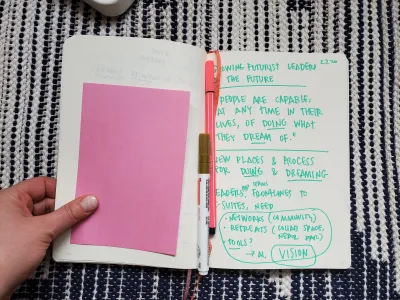 2.2.20
GROWING FUTURIST LEADERS
THE FUTURE
"PEOPLE ARE CAPABLE,
AT ANY TIME IN THEIR
LIVES, OF DOING WHAT
THEY DREAM OF."
NEW PLACES & PROCESS
FOR DOING & DREAMING
LEADERS, FRONTLINES TO
SUITES, NEED
• NETWORKS (COMMUNITY)
• RETREATS (COLLAB SPACE,
• TOOLS?
→ AL VISION